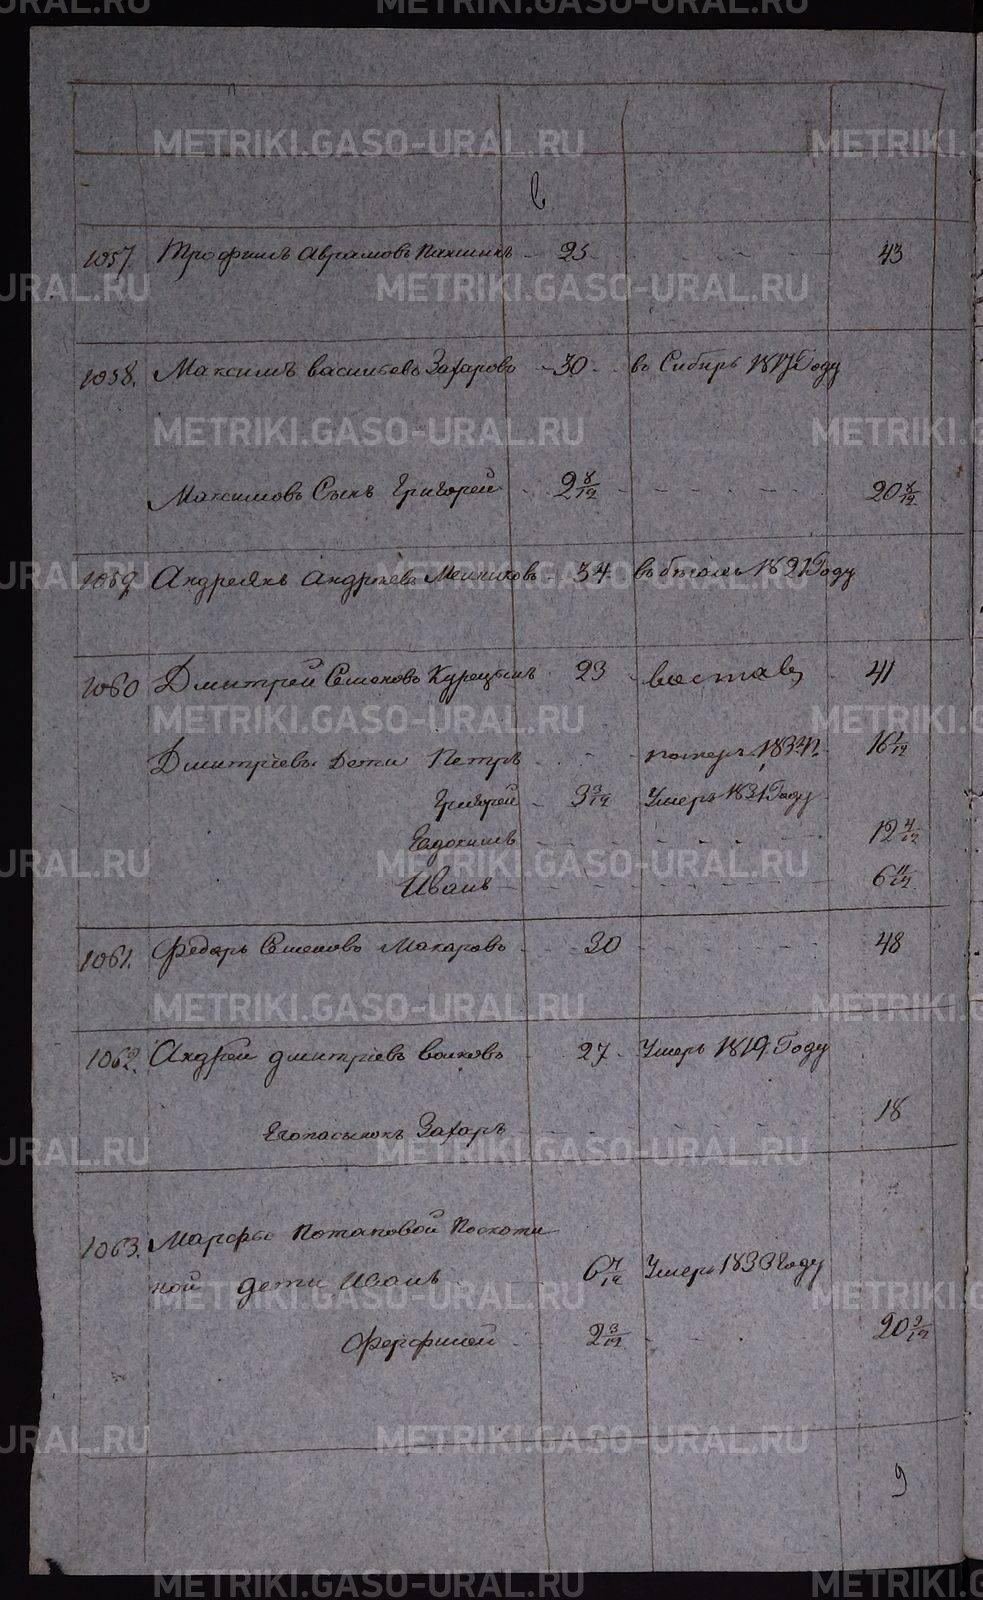 METRIKI.GASO-URAL.RU
6
1057. Трофимъ Аврамовъ - 25 - - - - 43
1058. Максимъ васильевъ Захаровъ - 30 - въ Сибирь 1817 Году
Максимовъ Сынъ Григорей - 2 8/12 - - - - 20 8/12
1059. Андреянъ Андреевъ Мелниковъ - 34 1821 Году
1060 Дмитрей Семеновъ Курецынъ - 23 41
Дмитріевы Дети Петръ - - 16 1/12
Григорей - 3 3/12 Умеръ 1831 Году
Евдокимъ - - - - 12 4/12
Иванъ - - - - 6 11/12
1061. Федоръ Семеновъ Макаровъ - 30 - - - 48
1062. Андрей дмитріевъ волковъ 27 - Умеръ 1819 Году
Егопасынокъ Захаръ - - - - 18
1063. Марфы Потаповой Поскоти
ной дети Иванъ 6 7/12 Умеръ 1833 Году
Ферфилей - 2 3/12 - - 20 3/12
9